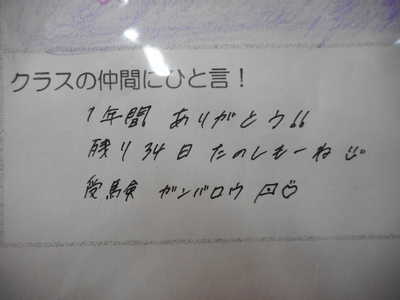 クラスの仲間にひと言！
1年間 ありがとう!!
残り 34日 たのしもーね
受験 ガンバロウ